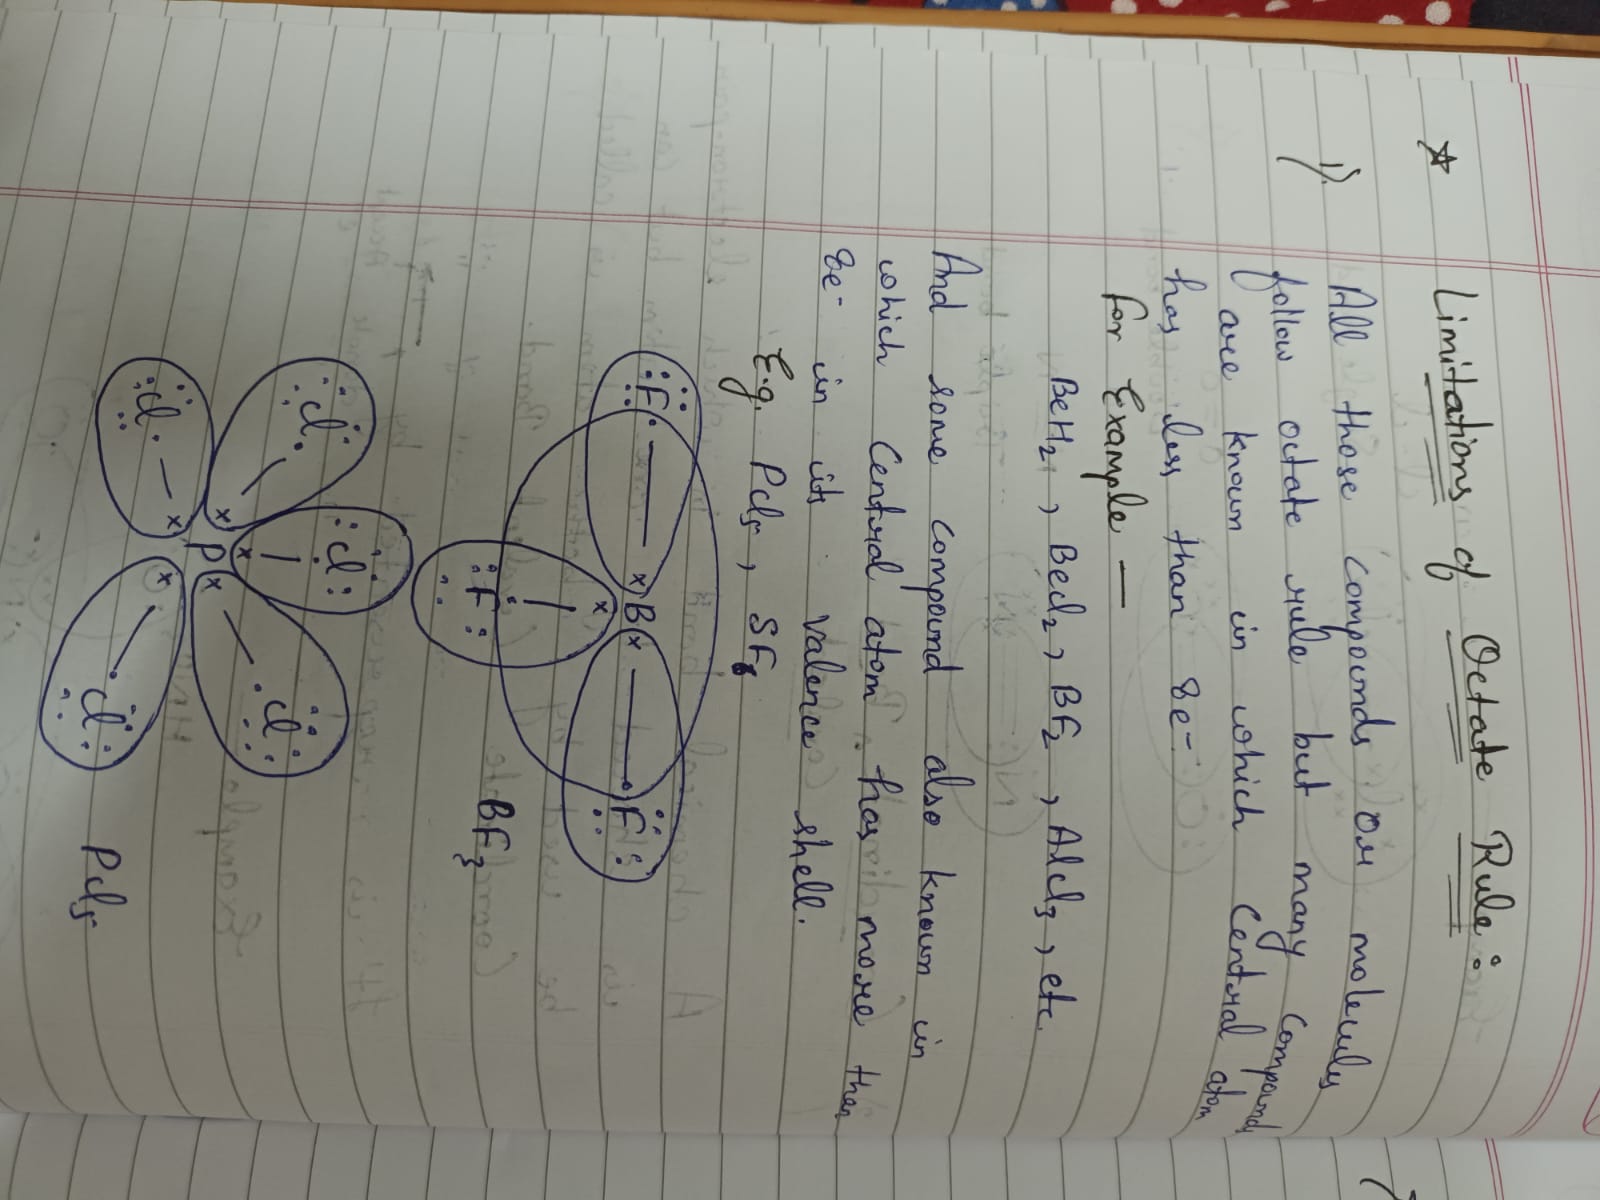 ☆ Limitations of Octate Rule:
1). All those compounds or moleculs
follow octate rule but many compounds
are known in which Central atom
has less than 8e-
for Example —
BeH2, Becl2, BF2, Alcl3, etc.
And some compound also known in
which Central atom has more than
8e- in its valence shell.
E.g. Pcl5, SF6
F — x B x — F
x
|
F
BF3
cl cl cl
x x P x
cl — x x — cl
Pcl5